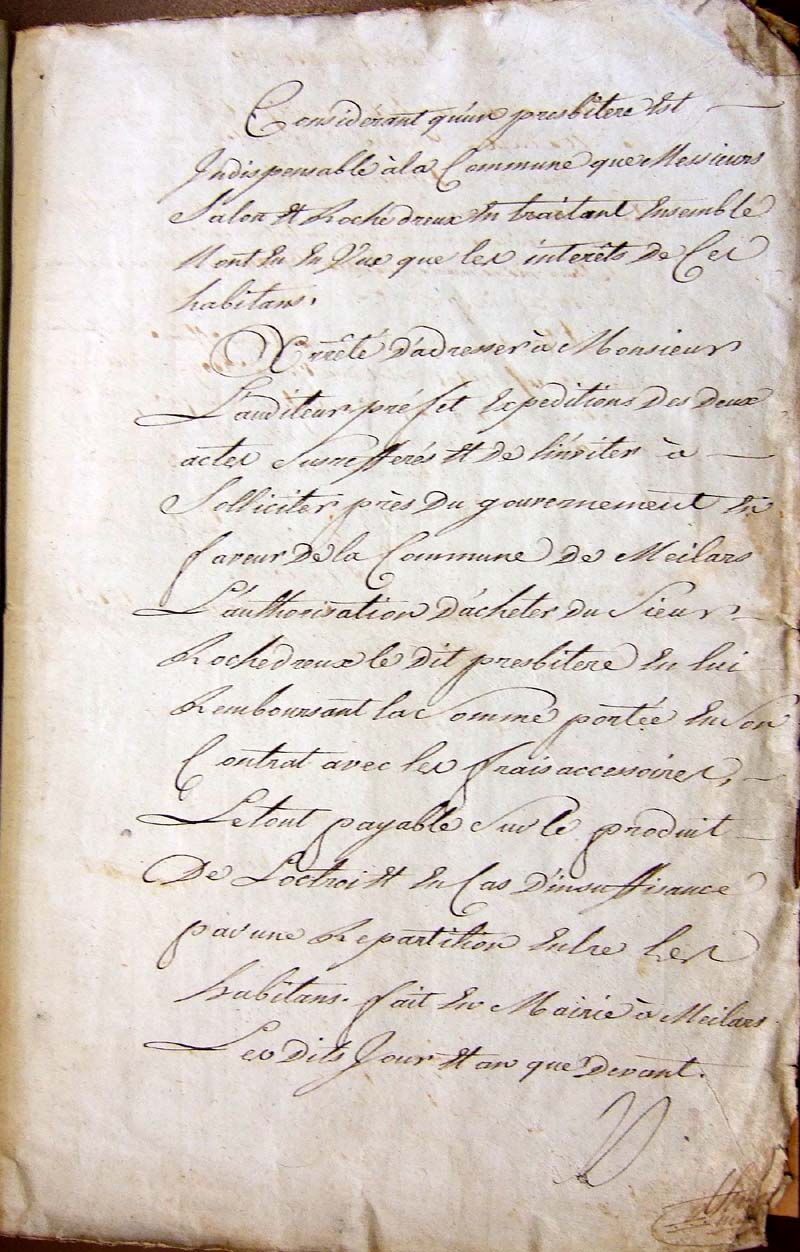 Considérant qu'un presbitere Est
Indispensable à la Commune que Messieurs
Salon Et Rochedreux En traitant Ensemble
N'ont Eu En Vue que les intérêts de Ces
habitans.
Arrêté d'adresser à Monsieur
L'auditeur préfet Expeditions des deux
actes Susrefferés Et de l'inviter à
Solliciter près du gouvernement En
faveur De la Commune de Meilars
L'authorisation D'acheter du Sieur
Rochedreux le dit presbitere En lui
Remboursant la Somme portée En Son
Contrat avec les frais accessoires,
Le tout payable Sur le produit
De Loctroi Et En Cas D'insuffisance
par une Repartition Entre les
habitans. fait En Mairie à Meilars
Les Dits Jour Et an que Devant.